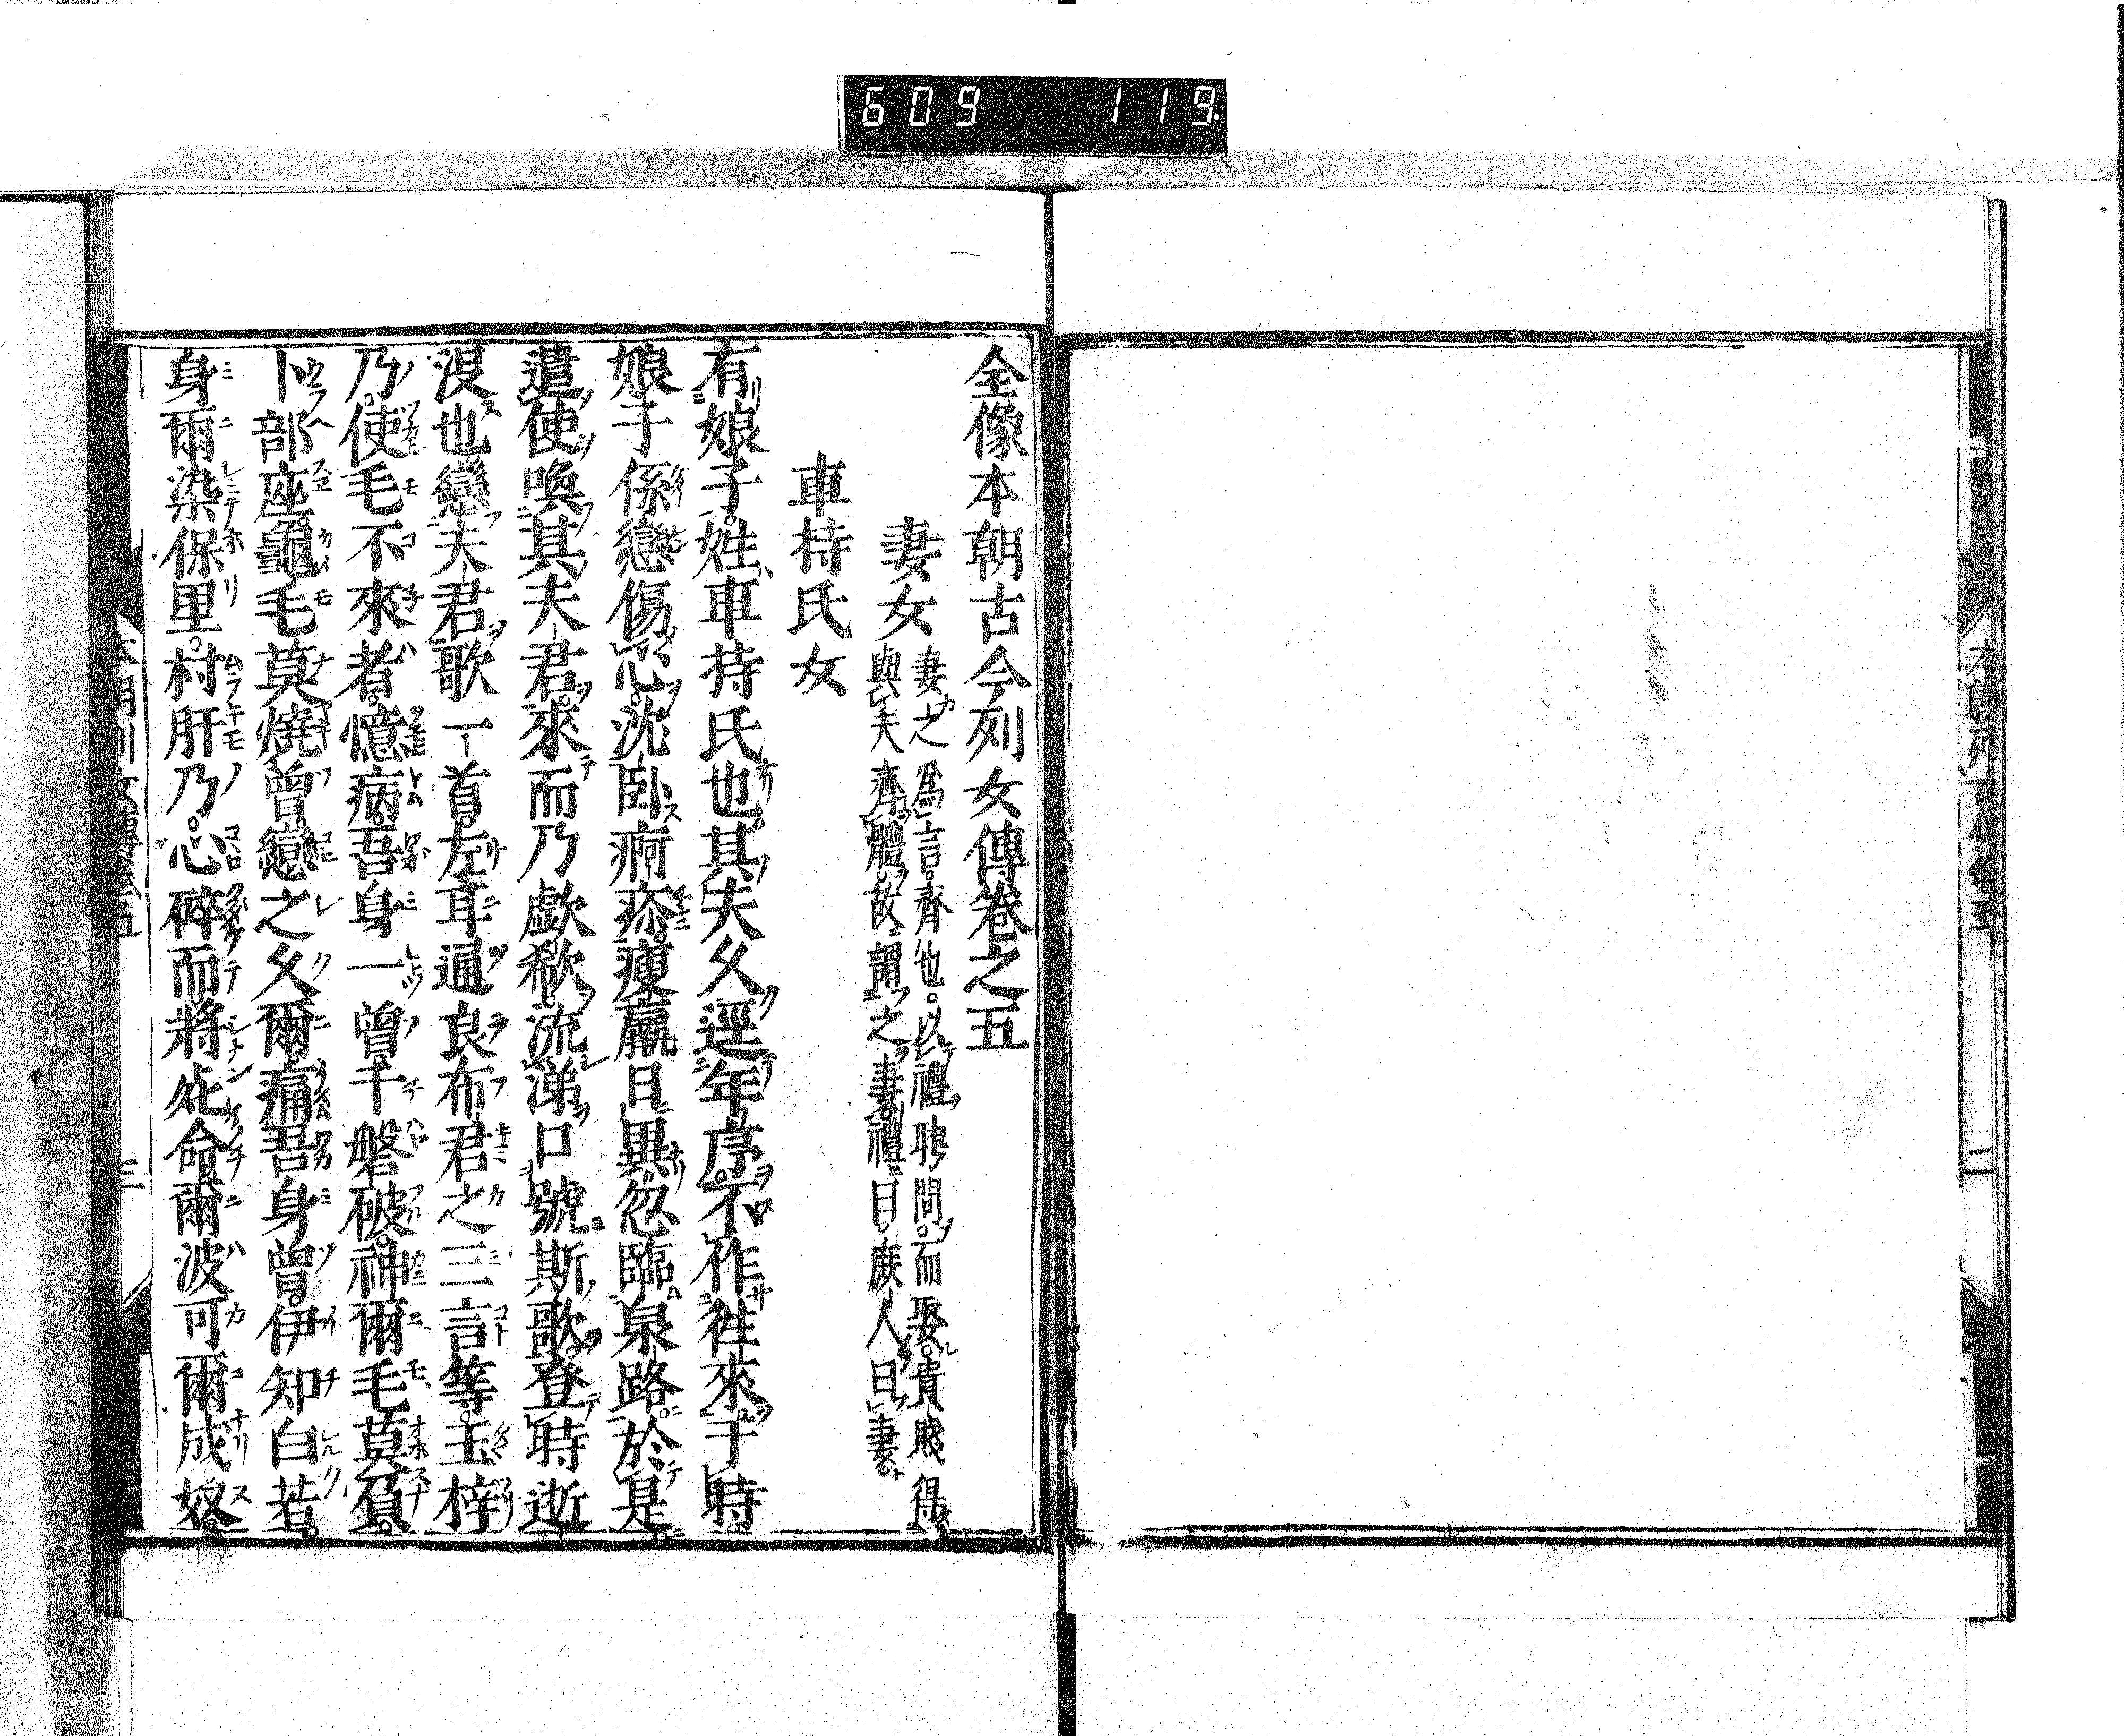 609 119
全像本朝古今列女傳卷之五
妻女
妻之爲言齊也。以禮聘問。而娶。貴賤得
與夫齊體。故謂之妻。禮曰。庶人曰妻。
車持氏女
有娘子。姓車持氏也。其夫久逕年序。不作徃來。于時
娘子係戀傷心。沈臥痾疹。瘦羸日異。忽臨泉路。於是
遣使喚其夫君。來而乃歔欷。流涕口號斯歌。登時逝
沒也戀夫君歌一首。左耳通良布君之三言等。玉梓
乃。使毛不來者。憶病。吾身一曾千磐破。神爾毛莫負。
卜部座。龜毛莫燒曾。戀之久爾。痛吾身曾。伊知白苦。
身爾染保里。村肝乃。心碎而。將死命爾波可爾成奴。